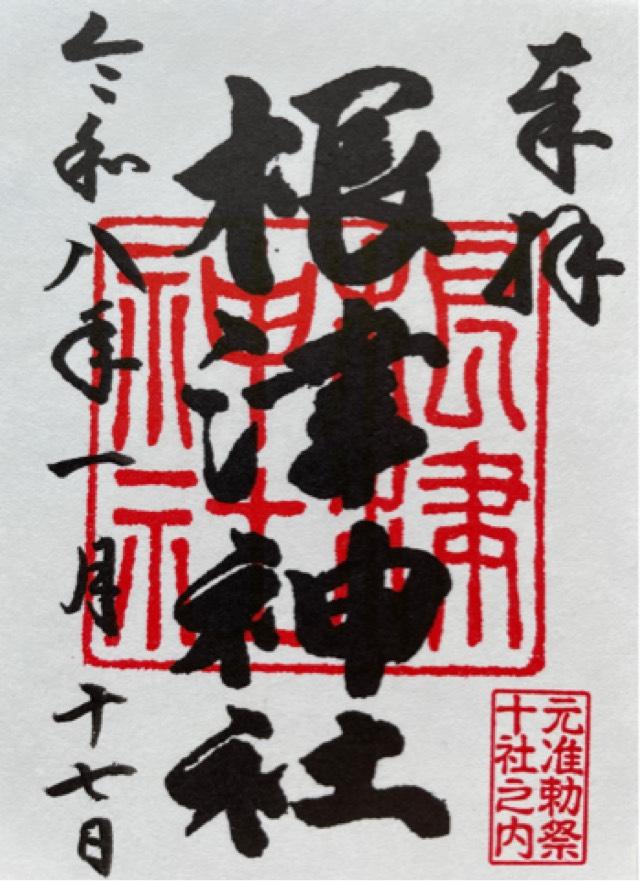 奉拝
根津神社
令和八年一月十七日
根津
神社
元准勅祭
十社之内